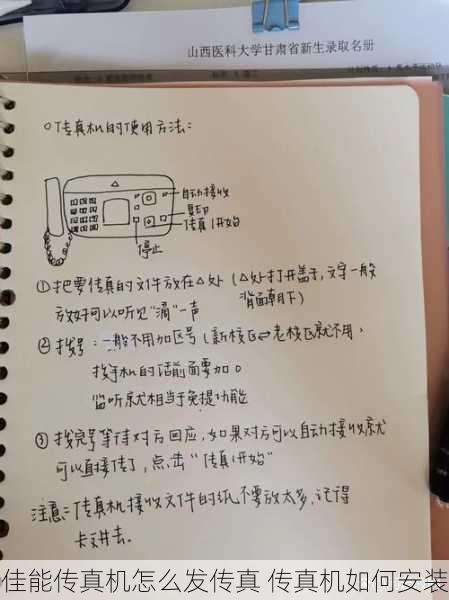 山西医科大学甘肃省新生录取名册
○传真机的使用方法：
自动接收
复印
传真/开始
停止
①把要传真的文件放在△处（△处打开盖子，文字一般
放好可以听见“滴”一声 背面朝下）
②拨号：一般不用加区号（新校区⇔老校区就不用，
拨手机的话前面要加0
监听就相当于免提功能
③拨完号等待对方回应，如果对方可以自动接收就
可以直接传了，点击“传真/开始”
注意：传真机接收文件的纸不要放太多，记得
卡进去。
佳能传真机怎么发传真 传真机如何安装